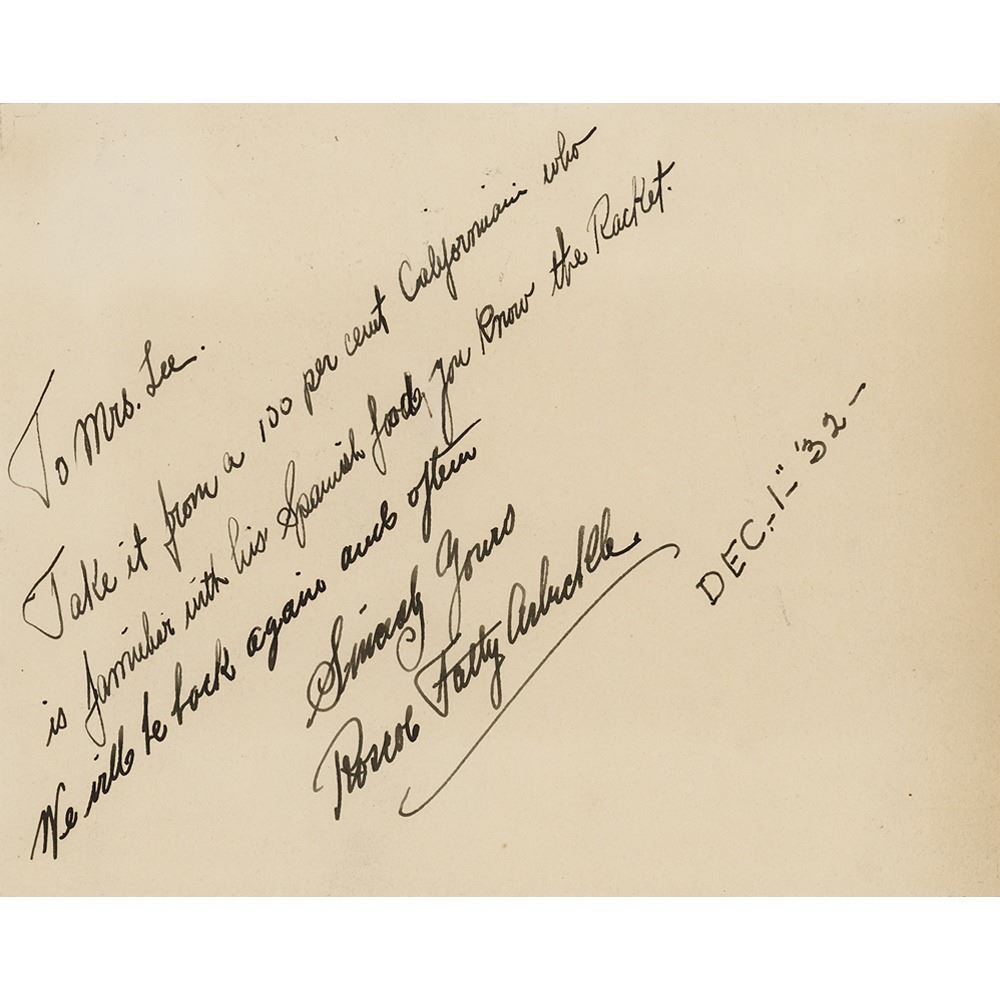 To Mrs. Lee.
Take it from a 100 per cent Californian who
is familiar with his Spanish food, you know the Racket.
We will be back again and often
Sincerely Yours
Roscoe Fatty Arbuckle.
DEC.-1-"32-